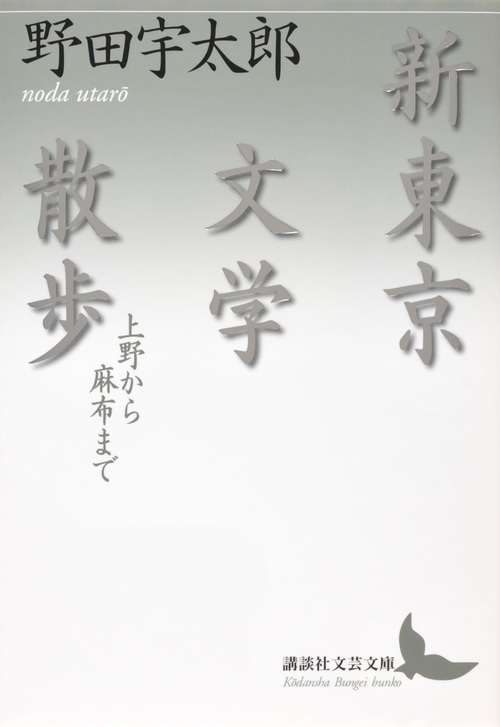 野田宇太郎
noda utarō
新東京
文学
散歩
上野から
麻布まで
講談社文芸文庫
Kōdansha Bungei bunko